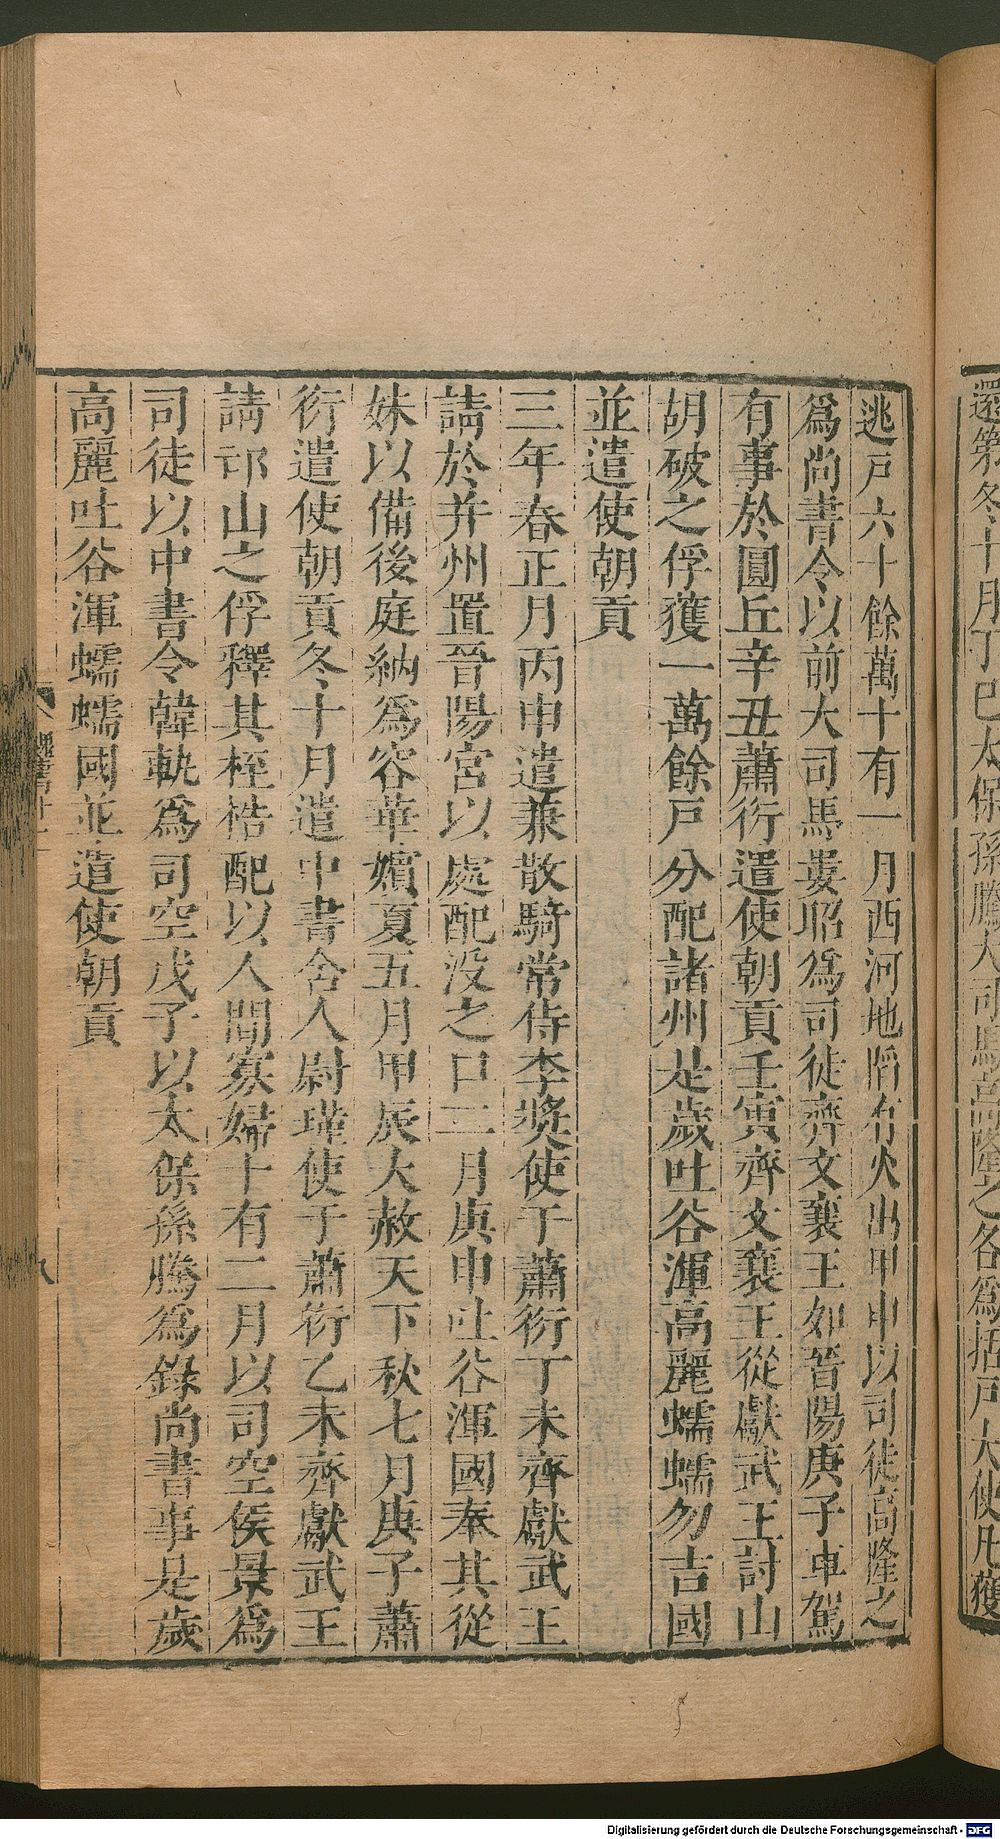 還第冬十月丁巳太保孫騰大司馬高隆之各爲括戸大使凡獲
逃戸六十餘萬十有一月西河地陷有火出甲申以司徒高隆之
爲尚書令以前大司馬婁昭爲司徒齊文襄王如晉陽庚子車駕
有事於圓丘辛丑蕭衍遣使朝貢壬寅齊文襄王從獻武王討山
胡破之俘獲一萬餘戸分配諸州是歲吐谷渾高麗蠕蠕勿吉國
並遣使朝貢
三年春正月丙申遣兼散騎常侍李奬使于蕭衍丁未齊獻武王
請於并州置晉陽宮以處配没之口二月庚申吐谷渾國奉其從
妹以備後庭納爲容華嬪夏五月甲辰大赦天下秋七月庚子蕭
衍遣使朝貢冬十月遣中書舍人尉瑾使于蕭衍乙未齊獻武王
請邙山之俘釋其桎梏配以人間寡婦十有二月以司空侯景爲
司徒以中書令韓軌爲司空戊子以太保孫騰爲錄尚書事是歲
高麗吐谷渾蠕蠕國並遣使朝貢
八
Digitalisierung gefördert durch die Deutsche Forschungsgemeinschaft - DFG